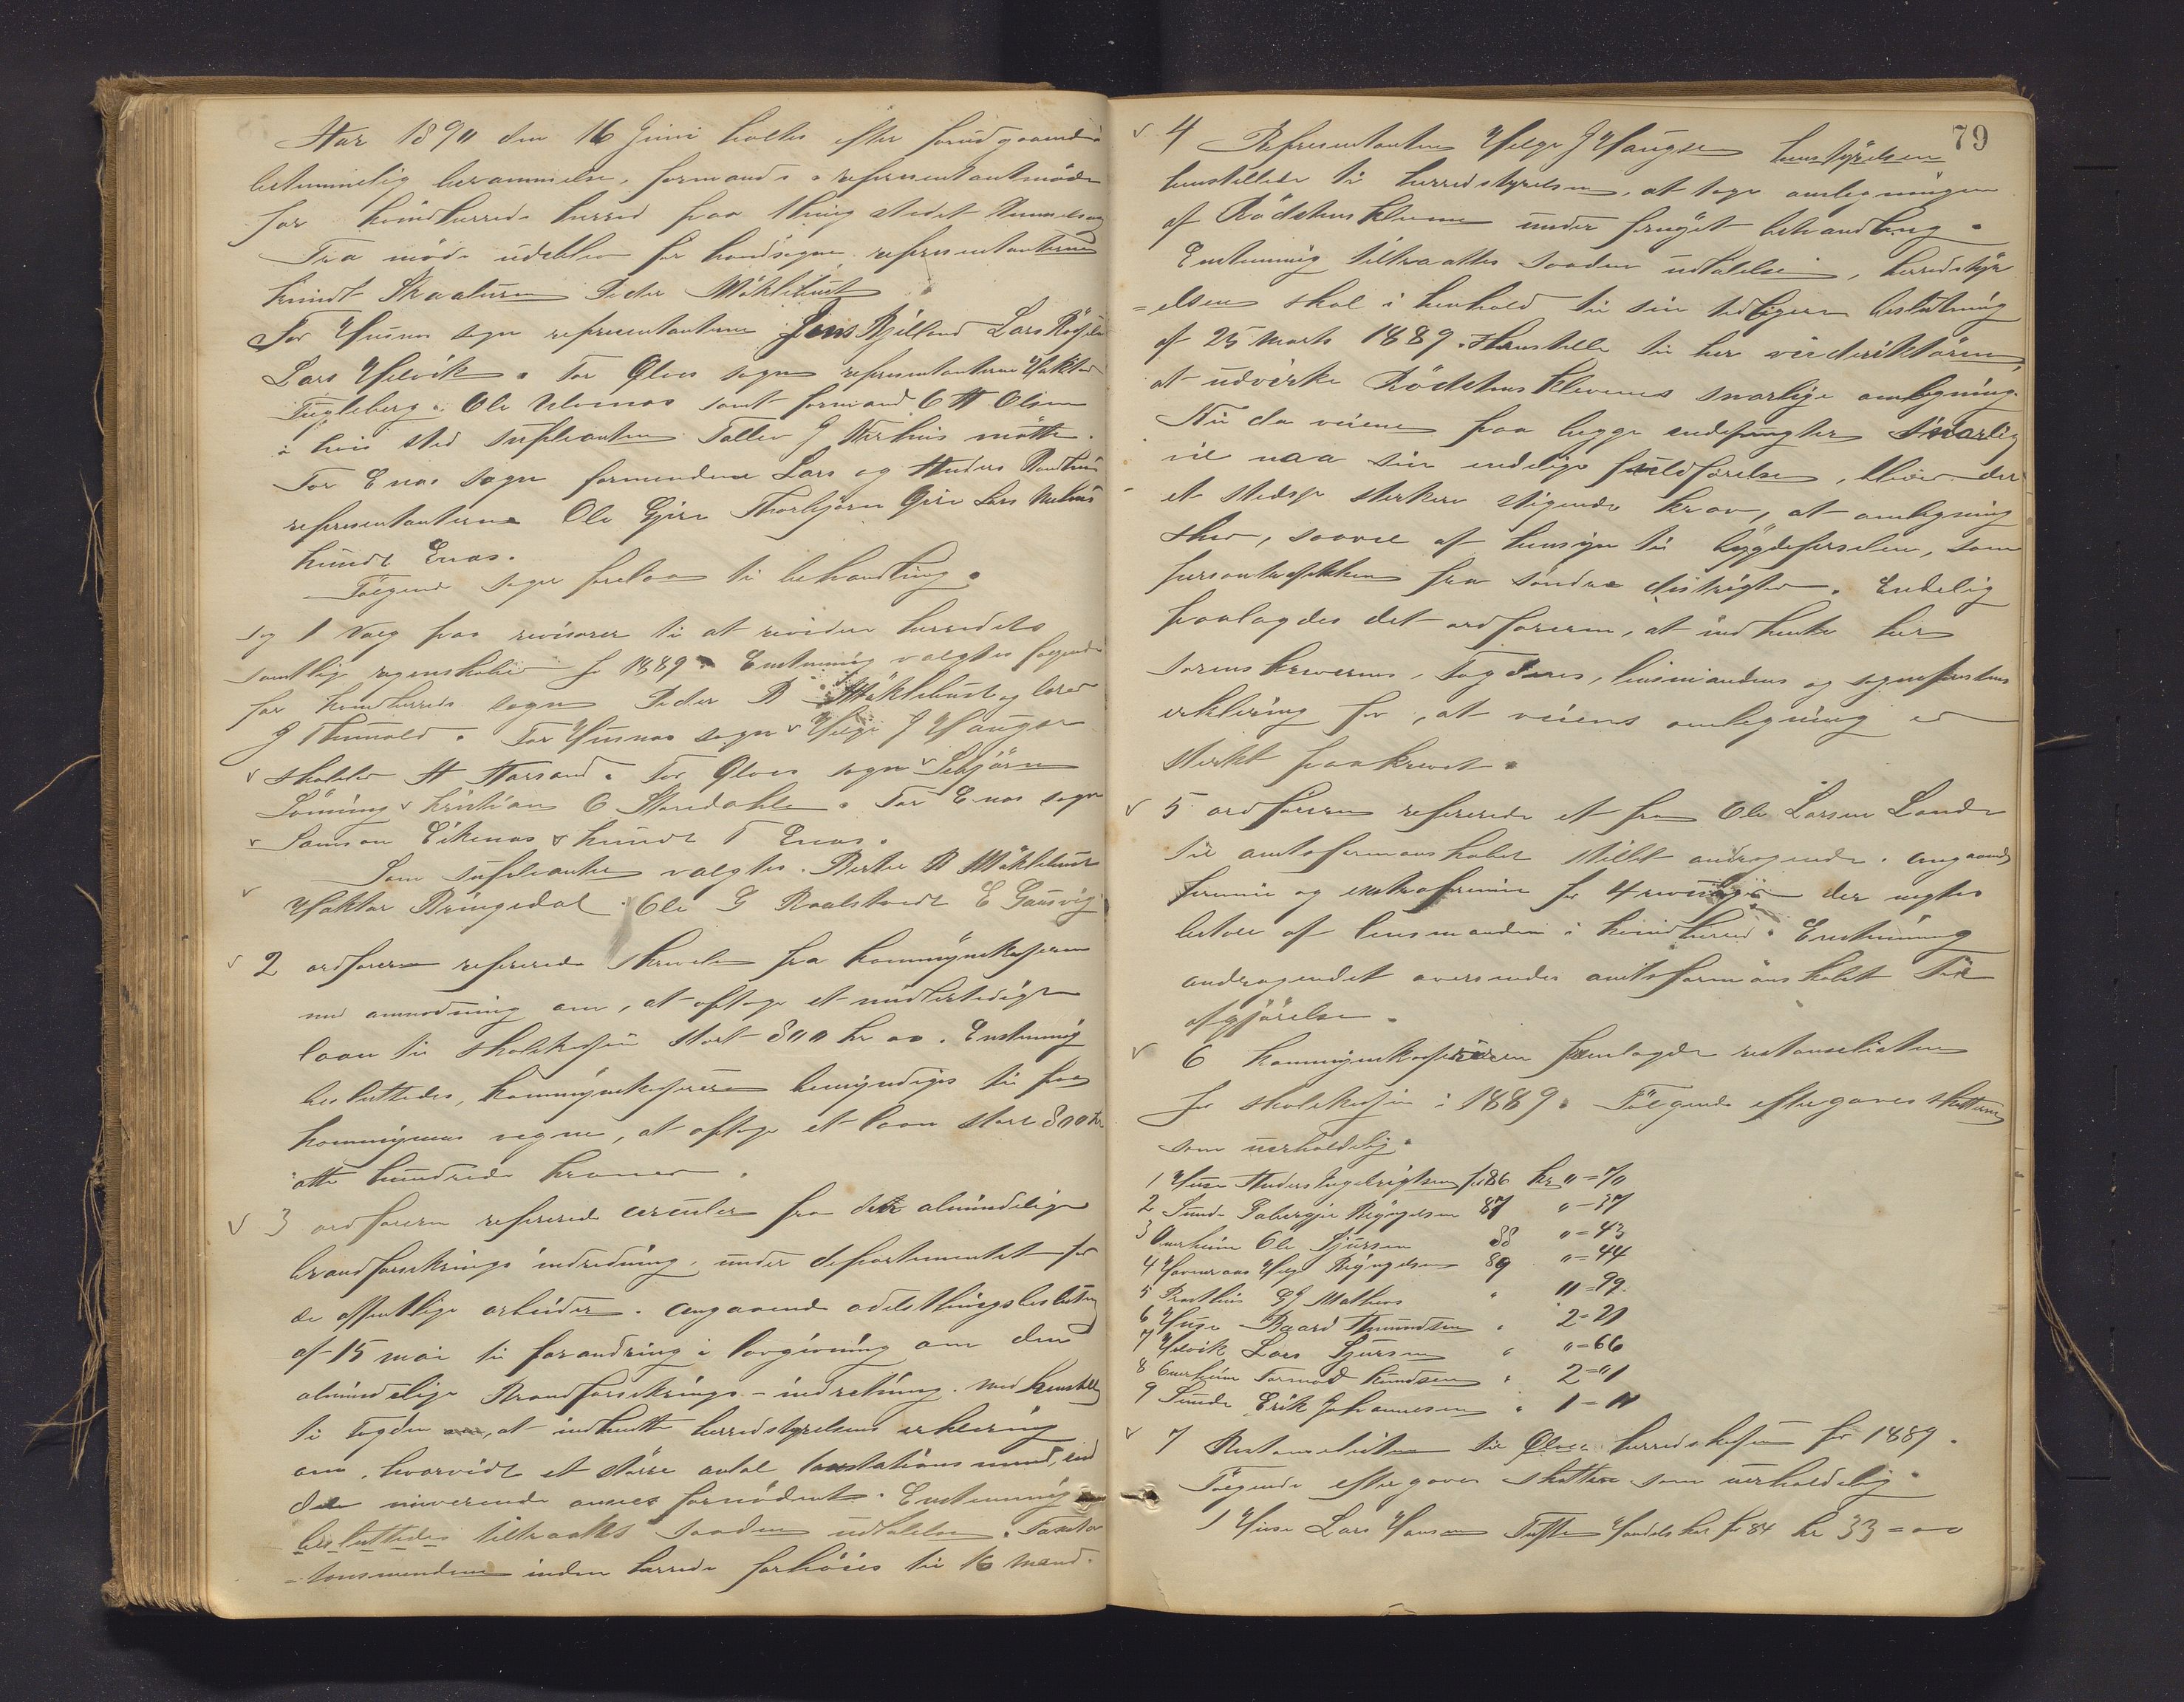 Aar 1890 den 16 Juni holtes efter forudgaaende
bestemmelig berammelse, formands o representantmøde
for Kvindherreds herred paa thingstedet
Fra møde udeblev for hovedsogne representanterne
Knudt Skaaluren Peder Mæhlebust
For Husnes sogn representanterne Jens Kjelland Lars
Lars Helvik. For Ølves sogn representanterne Haktor
Fugleberg, Ole samt formand O H Olsen
i hvis sted supleanten Tollev J mødte.
For Enæs sogn formændene Lars og Anders
representanterne Ole Gjere Thorbjørn Gjere Lars
Knudt Enæs.
Følgende sager forelaa til behandling.
Sag 1 Valg paa revisorer til at revidere herredets
samtlig regnskaber for 1889. Enstemmig valgtes følgende
for Kvindherreds sogn Peder B Mæhlebust og
J For Husnes sogn Helge J Haugse
For Ølves sogn
Kristian O For Enæs sogn
Samson Eikenæs Knudt T Enæs.
Som supleanter valgtes. B Mæhlebust
Haktor Bringedal Ole G E
2 ordføreren refererede skrivelse fra kommunekassereren
med anmodning om, at optage et midlertidigt
laan til skolekassen stort 800 kr oo. Enstemmig
besluttedes, kommunekassereren bemyndiges til paa
kommunens vegne, at optage et laan stort 800 kr
otte hundrede kroner.
3 ordføreren refererede circulær fra den almindelige
brandforsikrings indredning, under departementet for
de offentlige arbeider. angaaende odelsthingsbeslutning
af 15 mai til forandring i lovgivning om den
almindelige Brandforsikrings-indretning. med henstillen
til Fogden, at indhente herredstyrelsens erklæring
om, hvorvidt et større antal taxtationsmænd, end
de nuværende ansees fornødent. Enstemmig
besluttedes tiltraattes saadan udtalelse. Taxta-
-tionsmændene inden herredet forhøies til 16 mænd.
79
4 Representanten Helge J Haugsen
henstillede til herredstyrelsen, at tage omlegningen
af Rødstens Klevene under fornyet behandling.
Enstemmig tiltraattes saadan udtalelse, herredstyr
=elsen skal i henhold til sin tidligere beslutning
af 25 marts 1889. Henstille til her veidirektøren,
at udvirke Rødstens Klevenes snarlige omlegning.
Nu da veiene paa begge endepungter snarlig
vil naa sin endelige fuldførelse, bliver der
et stedse sterkere stigende krav, at omlegning
sker, saavel af hensyn til bygdeferselen, som
persontrafikken fra søndre distrigter. Endelig
paalagdes det ordføreren, at indhente her
sorenskrivernes, fogdens, lensmandens og sogneprestens
erklæring for, at veiens omlegning er
sterkt paakrævet.
5 ordføreren refererede et fra Ole Larsen Lande
til amtsformandskabet stillet andragende. angaaende
premie og extrapremie for 4 der negtes
betalt af lensmanden i Kvindherred. Enstemmig
andragendet oversendes amtsformandskabet til
afgjørelse.
6 kommunekassereren fremlagde restanselisten
for skolekassen i 1889. Følgende eftergaves skatterne
som uerholdelig.
1 Huse Anders Ingebrigtsen for 86 kr „=70
2 Sunde Brynjelsen 87 „=37
3 Omvikim Ole Sjursen 88 „=43
4 Helge Brynjelsen 89 „=44
5 Mathias „ 11=99.
6 Huse Baard Amundsen „ 2=21
7 Helvik Lars Sjursen „ „=66
8 Tormod Knudsen „ 2="1
9 Sunde Erik Johannesen „ 1=11
7 Restanselisten til Ølves herredskasse for 1889.
Følgende eftergaves skatten som uerholdelig.
1 Huse Lars Hansen Tofte for 84 kr 33=00